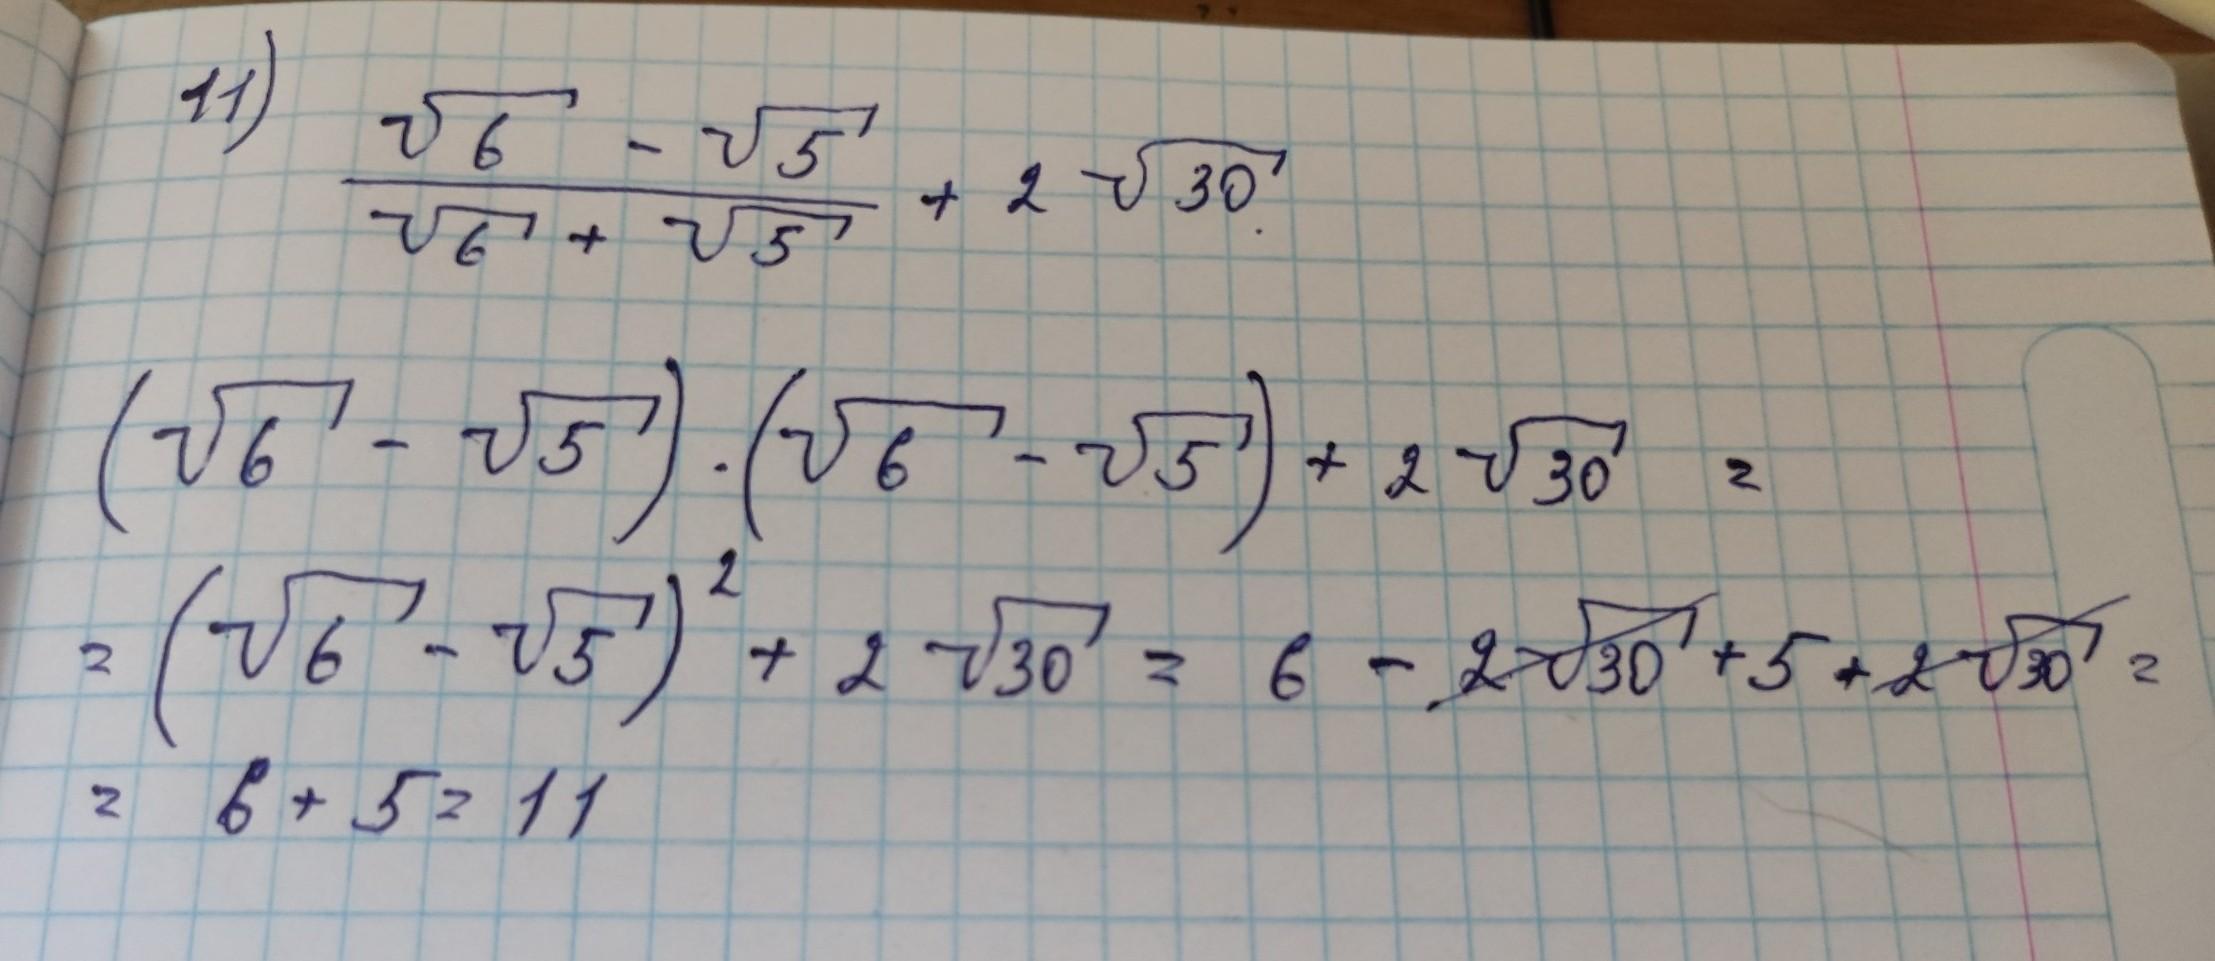 11) (√6 - √5)/(√6 + √5) + 2√30
(√6 - √5) · (√6 - √5) + 2√30 =
= (√6 - √5)² + 2√30 = 6 - 2√30 + 5 + 2√30 =
= 6 + 5 = 11